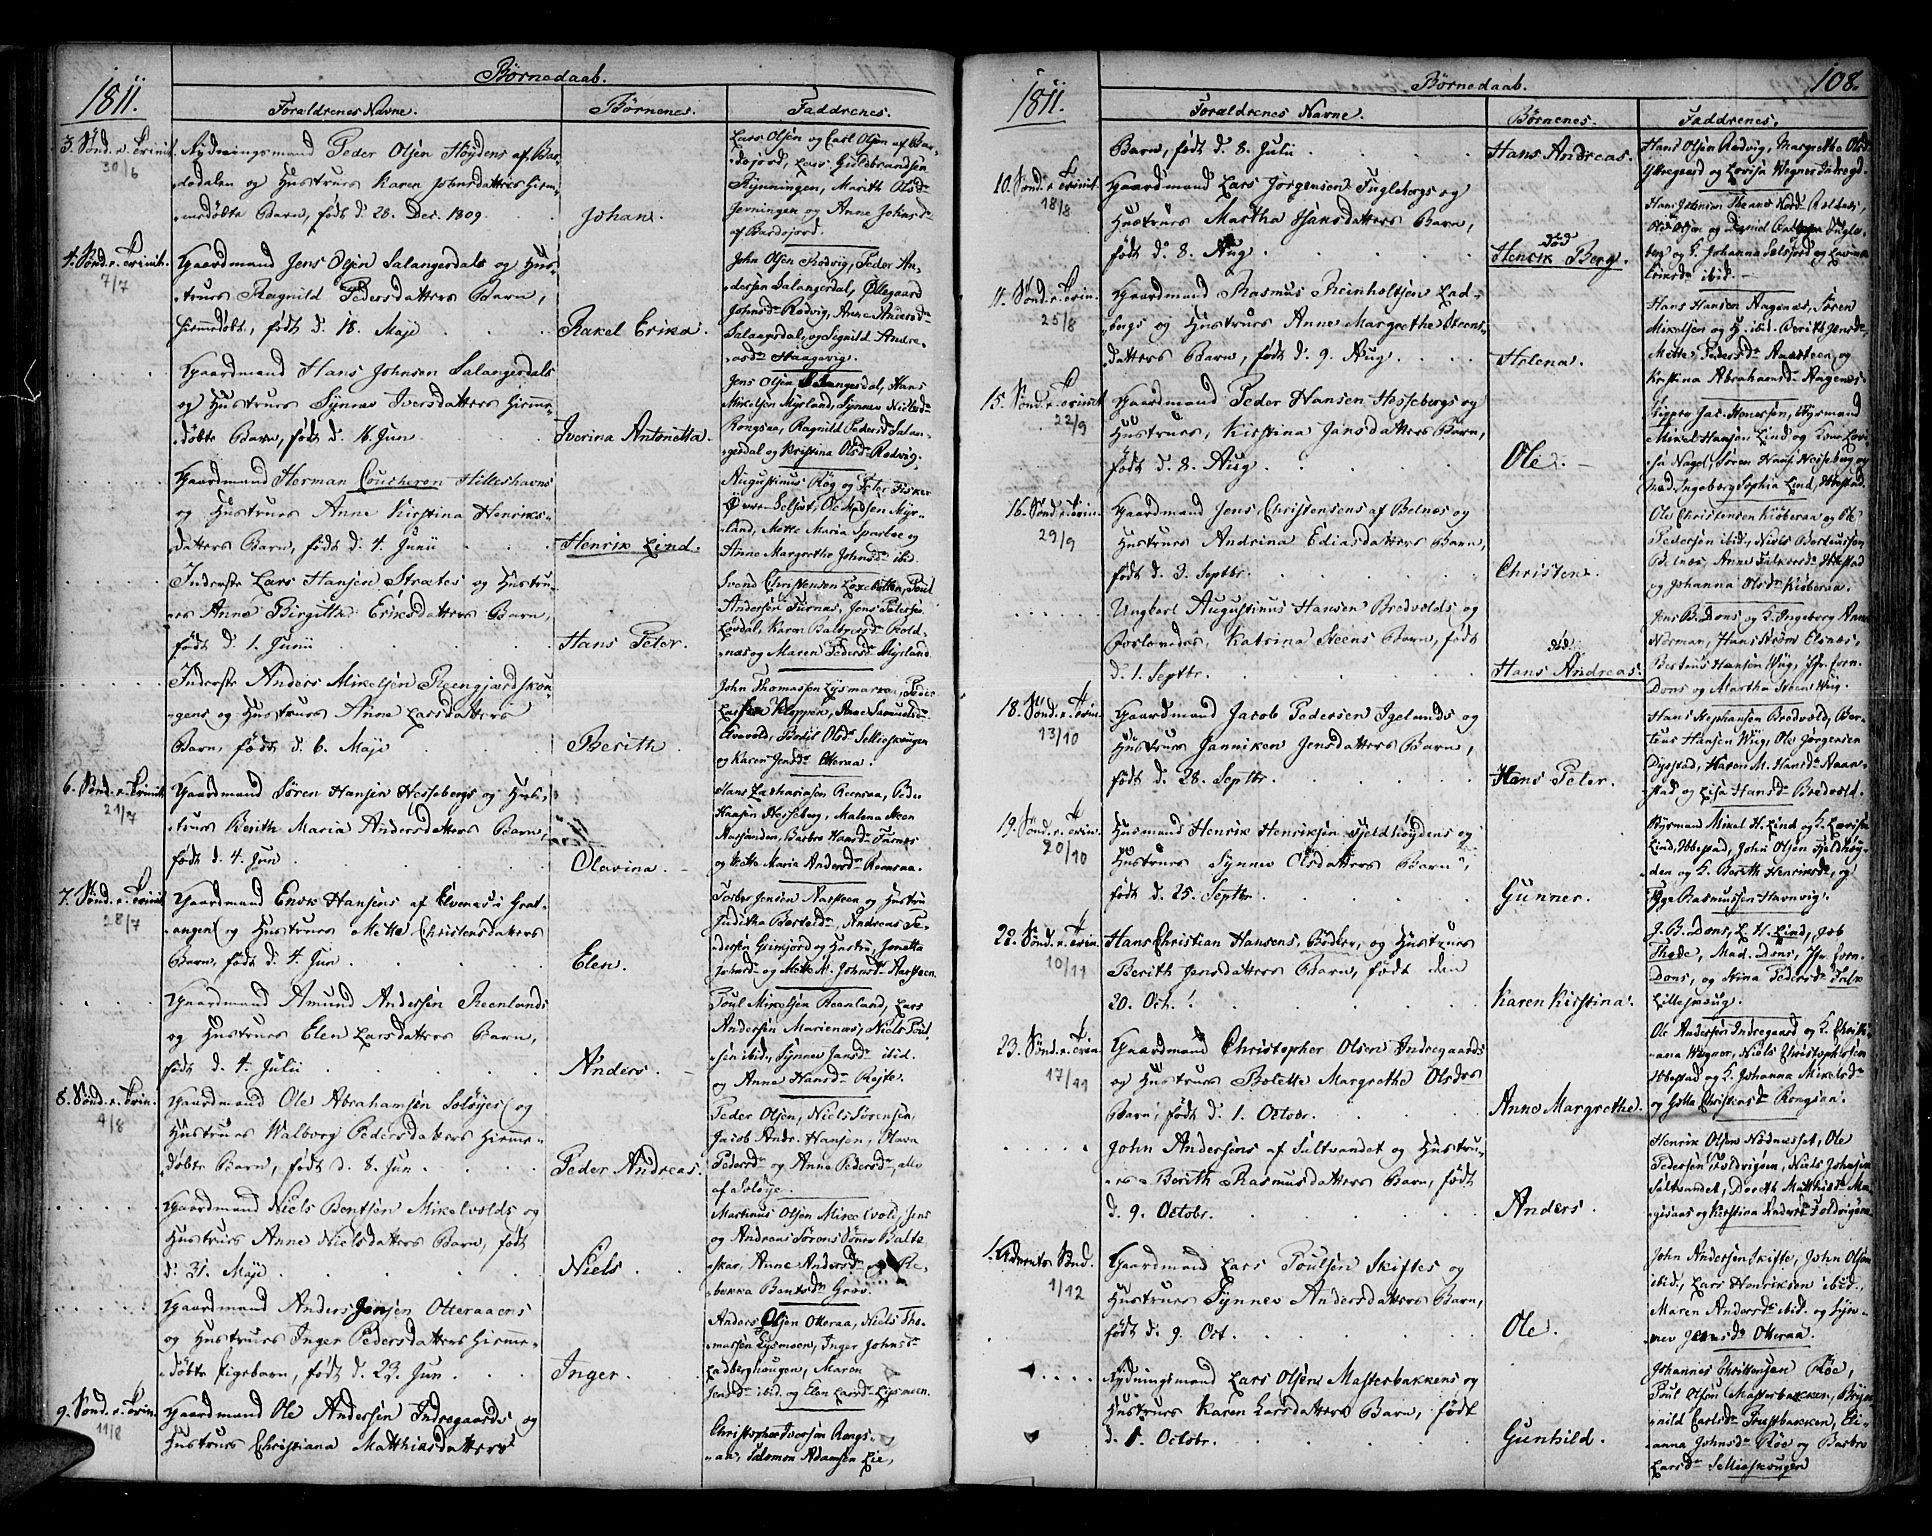 1811.
Børnedaab.
Forældrenes Navne.
Børnenes.
Faddrenes.
3. Sønd. e. Trinit.
30/6
Rydningsmand Peder Olsen Høydens af Bar-
dodalen og Hustrues Karen Johnsdatters hiem-
medøbte Barn, født d. 28. Dec. 1809.
Johan.
Lars Olsen og Carl Olsen af Bar-
dojord, Lars Guldbrandsen
Kynningen, Marith Olsdr
og Anne Johnsdr
af Bardojord.
4. Sønd. e. Trinit.
7/7
Gaardmand Jens Olsen Salangerdals og Hus-
trues Ragnild Pedersdatters Barn,
hiemdøbt, født d. 18. Maje
Rakel Erika.
John Olsen Rodvig, Peder An-
dersen Salangerdal, Øllegaard
Johnsdr Rodvig, Anne Andersdr
Salangerdal, og Segnild Andre-
asdr Haagavig.
Gaardmand Hans Johnsen Salangerdals
og Hustrues Synnev Iversdatters hiemme-
døbte Barn, født d. 16. Jun
Iverina Antonetta.
Jens Olsen Salangerdal, Hans
Mikelsen Myrland, Synnev Nielsdr
Rongsaa, Ragnild Pedersdr Salan-
gerdal og Kristina Olsdr Rodvig.
Gaardmand Herman Coucheron Hilleshavns
og Hustrues Anne Kirstina Henriks-
datters Barn, født d. 4. Junii
Henrik Lind.
Augustinus Røg og Peter Fisker
Selset, Ole Madsen Myr-
land, Mette Maria Sparboe og
Anne Margrethe Johnsdr ibid.
Inderste Lars Hansen Strætes og Hustru-
es Anne Birgitha Eriksdatters Barn,
født d. 1. Junii
Hans Peter.
Svend Christensen Loxebotten, Poul
Andersen Furnæs, Jens Petersen
Løvdal, Karen Baltzersdr Rold-
næs og Maren Pedersdr Myrland.
Inderste Anders Mikelsen Reengjærdskou-
gens og Hustrues Anne Larsdatters
Barn, født d. 6. Maje
Berith.
John Thomassen Lysmoen, Peder
Larsen Kloppen, Anne Samuelsdr
Elvevold, Bodil Olsdr Sellieskougen
og Karen Jensdr Otteraa.
6. Sønd. e. Trinit.
21/7
Gaardmand Søren Hansen Hesseberg og Hus-
trues Berith Maria Andersdatters Barn,
født d. 4. Jun
Olavina.
Hans Zachariasen Reensaa, Peder
Hansen Hesseberg, Malena Steen
Aarsanden, Barbro Haardr Furnæs
og Mette Maria Andersdr Reensaa.
7. Sønd. e. Trinit.
28/7
Gaardmand Enok Hansens af Elvenæs i Grat-
angen og Hustrues Mette Christensdatters
Barn, født d. 4. Jun
Elen.
Torber Jensen Aarsteen og Hustru
Juditha Berteldr, Andreas Pe-
dersen Grimjord og Hustru, Jonetta
Johnsdr og Mette M. Johnsdr Aarsteen.
Gaardmand Amund Andersen Reenlands
og Hustrues Elen Larsdatters Barn,
født d. 4. Julii
Anders.
Poul Mikelsen Reenland, Lars
Andersen Marienæs, Niels Poul-
sen ibid., Synnev Jansdr ibid.
og Anne Hansdr Røjte.
8. Sønd. e. Trin.
4/8
Gaardmand Ole Abrahamsen Soløyes og
Hustrues Walborg Pedersdatters hiemme-
døbte Barn, født d. 8. Jun
Peder Andreas.
Peder Olsen, Niels Sørensen,
Jacob Andr. Hansen, Olava
Pedersdr og Anne Pedersdr, alle
af Soløye.
Gaardmand Niels Bentsen Mikelvolds og
Hustrues Anne Nielsdatters Barn, født
d. 31. Maje
Niels.
Martinus Olsen Mikelvold, Jens
og Andreas Sørens Sønner Balte-
skar, Anne Andersdr og Re-
bekka Bentsdr Grov.
Gaardmand Anders Jensen Otteraaens
og Hustrues Inger Pedersdatters hiemme-
døbte Pigebarn, født d. 23. Jun.
Inger.
Anders Olsen Otteraa, Niels Tho-
massen Lysmoen, Inger Johnsdr
Ladberghougen, Maren
Jensdr ibid. og Elen Larsdr Lysmoen.
9. Sønd. e. Trin.
11/8
Gaardmand Ole Andersen Indregaards og
Hustrues Christiana Matthiasdatters
Christopher Iversen Rongs-
aa, Salomon Adamsen Lie,
1811.
Børnedaab.
108.
Forældrenes Navne.
Børnenes.
Faddrenes.
Barn, født d. 8. Julii
Hans Andreas.
Hans Olsen Rodvig, Margrethe Olsdr
Yttregaard og Lovisa Wegner Indregd.
10. Sønd. e. Trinit.
18/8
Gaardmand Lars Jørgensen Fuglebergs og
Hustrues Martha Hansdatters Barn,
født d. 8. Aug
død
Henrik Berg.
Hans Jensen
Ole Olsen og Daniel Fugle-
berg og K. Johanna Salsfjord og
ibid.
11. Sønd. e. Trin.
25/8
Gaardmand Rasmus Reinholtsen Lad-
bergs og Hustrues Anne Margrethe Steens-
datters Barn, født d. 9. Aug.
Helena.
Hans Hansen Aagenæs, Søren
Mikelsen og H. ibid. Berith Jensdr,
Mette Pedersdr Aarsteen og
Kristina Abrahamsdr Aagenæs.
15. Sønd. e. Trinit.
22/9
Gaardmand Peder Hansen Hessebergs og
Hustrues Kirstina Jansdatters Barn,
født d. 8. Aug.
Ole.
Skipper Jac. Henersen, Styrmand
Mikel Hansen Lind og Kone Lovi-
sa Nagel, Søren Hans. Hesseberg og
Mad. Ingeborg Sophia Lind, Ibbestad.
16. Sønd. e. Trin.
29/9
Gaardmand Jens Christensens af Belnæs og
Hustrues Andrina Ediasdatters Barn,
født d. 3. Septbr.
Christen.
Ole Christensen Kioberaa og Ole
Pedersen ibid., Niels Berteussen
Belnæs, Anne Falkersdr Ibbestad
og Johanna Olsdr Kioberaa.
Ungkarl Augustinus Hansen Bredvolds og
Forlovedes Katrina Steens Barn, født
d. 1. Septbr.
død
Hans Andreas.
Jens B. Dons og K. Ingeborg Anna
Norman, Hans Strøm Elsnæs,
Berteus Hansen Wiig, Jfr. Corn.
Dons og Martha Steen Wiig.
18. Sønd. e. Trin.
13/10
Gaardmand Jacob Pedersen Igelands og
Hustrues Janniken Jensdatters Barn,
født d. 28. Septbr.
Hans Peter.
Hans Stephansen Bredvold, Ber-
teus Hansen Wiig, Ole Jørgensen
Dyrstad, Karen M. Hansdr Haar-
stad og Lisa Hansdr Bredvold.
19. Sønd. e. Trin.
20/10
Husmand Henrik Henriksen Fjeldhøydens og
Hustrues Synnev Olsdatters Barn,
født d. 25. Septbr.
Gunner.
Styrmand Mikel H. Lind og K. Lovisa
Lind, Ibbestad, John Olsen Fjeldhøy-
den og K. Berith Henriksdr, og
Tyge Rasmussen Havnvig.
22. Sønd. e. Trin.
10/11
Hans Christian Hansens, Bødker, og Hustrues
Berith Jensdatters Barn, født den
20. Oct.
Karen Kirstina.
J. B. Dons, L. H. Lind, Job
Thode, Mad. Dons, Jfr. Corn.
Dons, og Stina Pedersdr Falk
23. Sønd. e. Trin.
17/11
Gaardmand Christopher Olsen Indregaards
og Hustrues Bolette Margrethe Olsdrs
Barn, født d. 1. Octobr.
Anne Margrethe.
Ole Andersen Indregaard og K. Christi-
ana Wegner, Niels Christophersen
Ibbestad og K. Johanna Mikelsdr
og Gitta Christensdr Rongsaa.
John Andersens af Saltvandet og Hustru-
es Berith Rasmusdatters Barn, født
d. 9. Octobr.
Anders.
Henrik Olsen Nødnesset, Ole
Pedersen Foldvigøen, Niels Johnsen
Saltvandet, Dorth Matthisdr Ma-
gesaas og Kirstina Andersdr Foldvigøen.
1. Advents Sønd.
1/12
Gaardmand Lars Poulsen Skiftes og
Hustrues Synnev Andersdatters Barn,
født d. 9. Oct.
Ole.
John Andersen Skifte, John Olsen
ibid., Lars Henriksen ibid.,
Maren Andersdr ibid. og Syn-
nev Jensdr Otteraa.
Rydningsmand Lars Olsens Masterbakkens og
Hustrues Karen Larsdatters Barn, født
d. 1. Octobr.
Gunhild.
Johannes Christensen Røe,
Poul Olsen Masterbakken, Bryn-
nild Carlsdr Trustbakken, Eli-
anna Johnsdr Røe og Barbro
Larsdr Sellieskougen